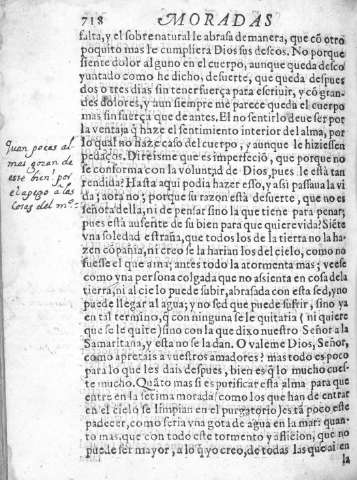 718 MORADAS
falta, y el sobrenatural le abrasa demanera, que cõ otro
poquito mas le cumpliera Dios sus deseos. No porque
siente dolor alguno en el cuerpo, aunque queda desco
yuntado como he dicho, desuerte, que queda despues
dos o tres dias sin tener fuerça para escriuir, y cõ gran
des dolores, y aun siempre me parece queda el cuerpo
mas sin fuerça que de antes. El no sentirlo deue ser por
la ventaja q̃ haze el sentimiento interior del alma, por
lo qual no haze caso del cuerpo, y aunque le hiziessen
pedaços. Direisme que es imperfeciõ, que porque no
se conforma con la voluntad de Dios, pues le està tan
rendida? Hasta aqui podia hazer esso, y assi passaua la vi
da; aora no; porque su razon està desuerte, que no es
señora della, ni de pensar sino la que tiene para penar;
pues està ausente de su bien para que quiere vida? Siẽte
vna soledad estraña, que todos los de la tierra no la ha-
zen cõpañia, ni creo se la harian los del cielo, como no
fuesse el que ama; antes todo la atormenta mas; veese
como vna persona colgada que no assienta en cosa de la
tierra, ni al cielo puede subir, abrasada con esta sed, y no
puede llegar al agua; y no sed que puede sufrir, sino ya
en tal termino, q̃ con ninguna se le quitaria (ni quiere
que se le quite) sino con la que dixo nuestro Señor a la
Samaritana, y esta no se la dan. O valeme Dios, Señor,
como apretais a vuestros amadores? mas todo es poco
para lo que les dais despues, bien es q̃ lo mucho cues-
te mucho. Quãto mas si es purificar esta alma para que
entre en la setima morada? como los que han de entrar
en el cielo se limpian en el purgatorio, es tã poco este
padecer, como seria vna gota de agua en la mar: quan-
to mas, que con todo este tormento y aflicion, que no
puede ser mayor, a lo q̃ yo creo, de todas las que ai en
la
quan pocas al
mas gozan de
este bien! por
el apego a las
cosas del m.º